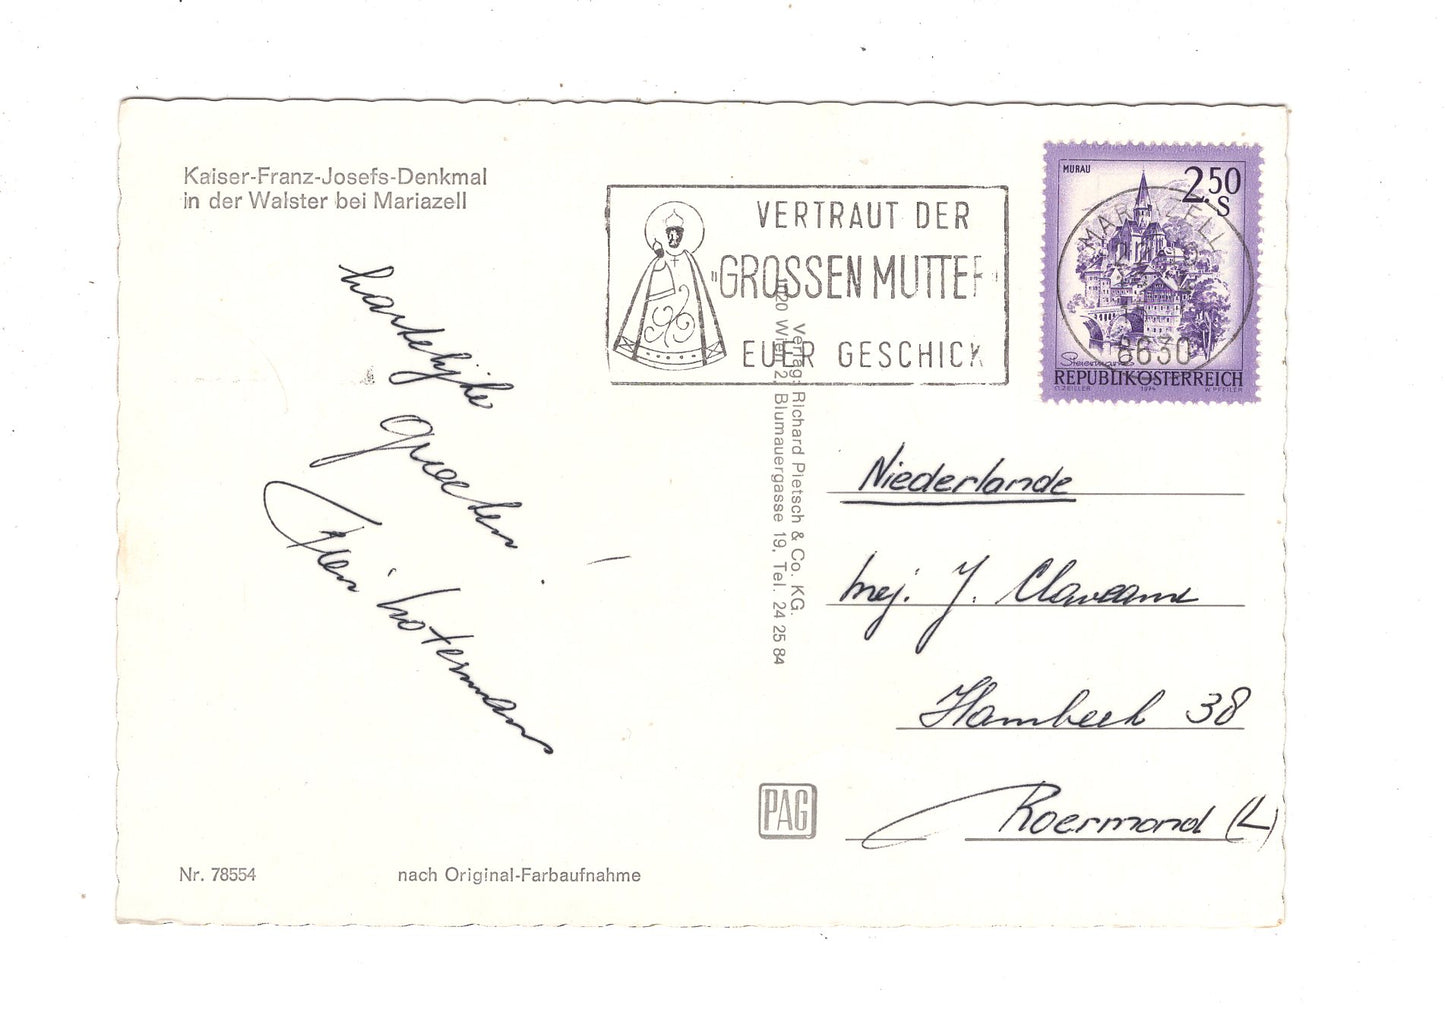 Kaiser-Franz-Josefs-Denkmal
in der Walster bei Mariazell
VERTRAUT DER
"GROSSEN MUTTER"
EUER GESCHICK
MURAU
2.50
S
MARIAZELL
8630
Steiermark
REPUBLIK ÖSTERREICH
O. ZEILER 1974 W. PFEILER
hartelijke
groeten
Verlag: Richard Pietsch & Co. KG.
1020 Wien 2, Blumauergasse 19, Tel. 24 25 84
Niederlande
Mej. J.
38
Roermond (L)
PAG
Nr. 78554
nach Original-Farbaufnahme